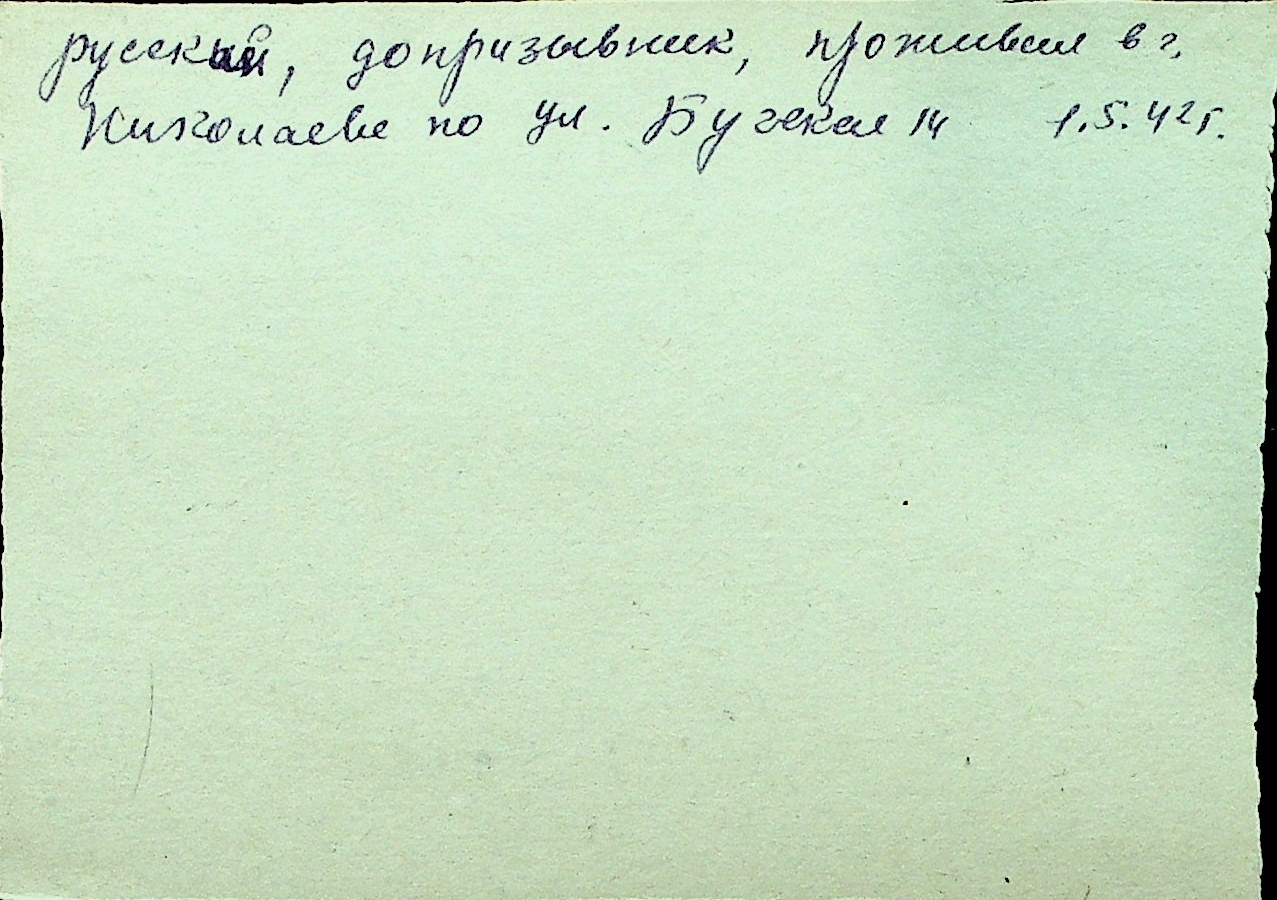 русский, допризывник, проживал в г.
Николаеве по ул. Бугская 14 1.5.42г.